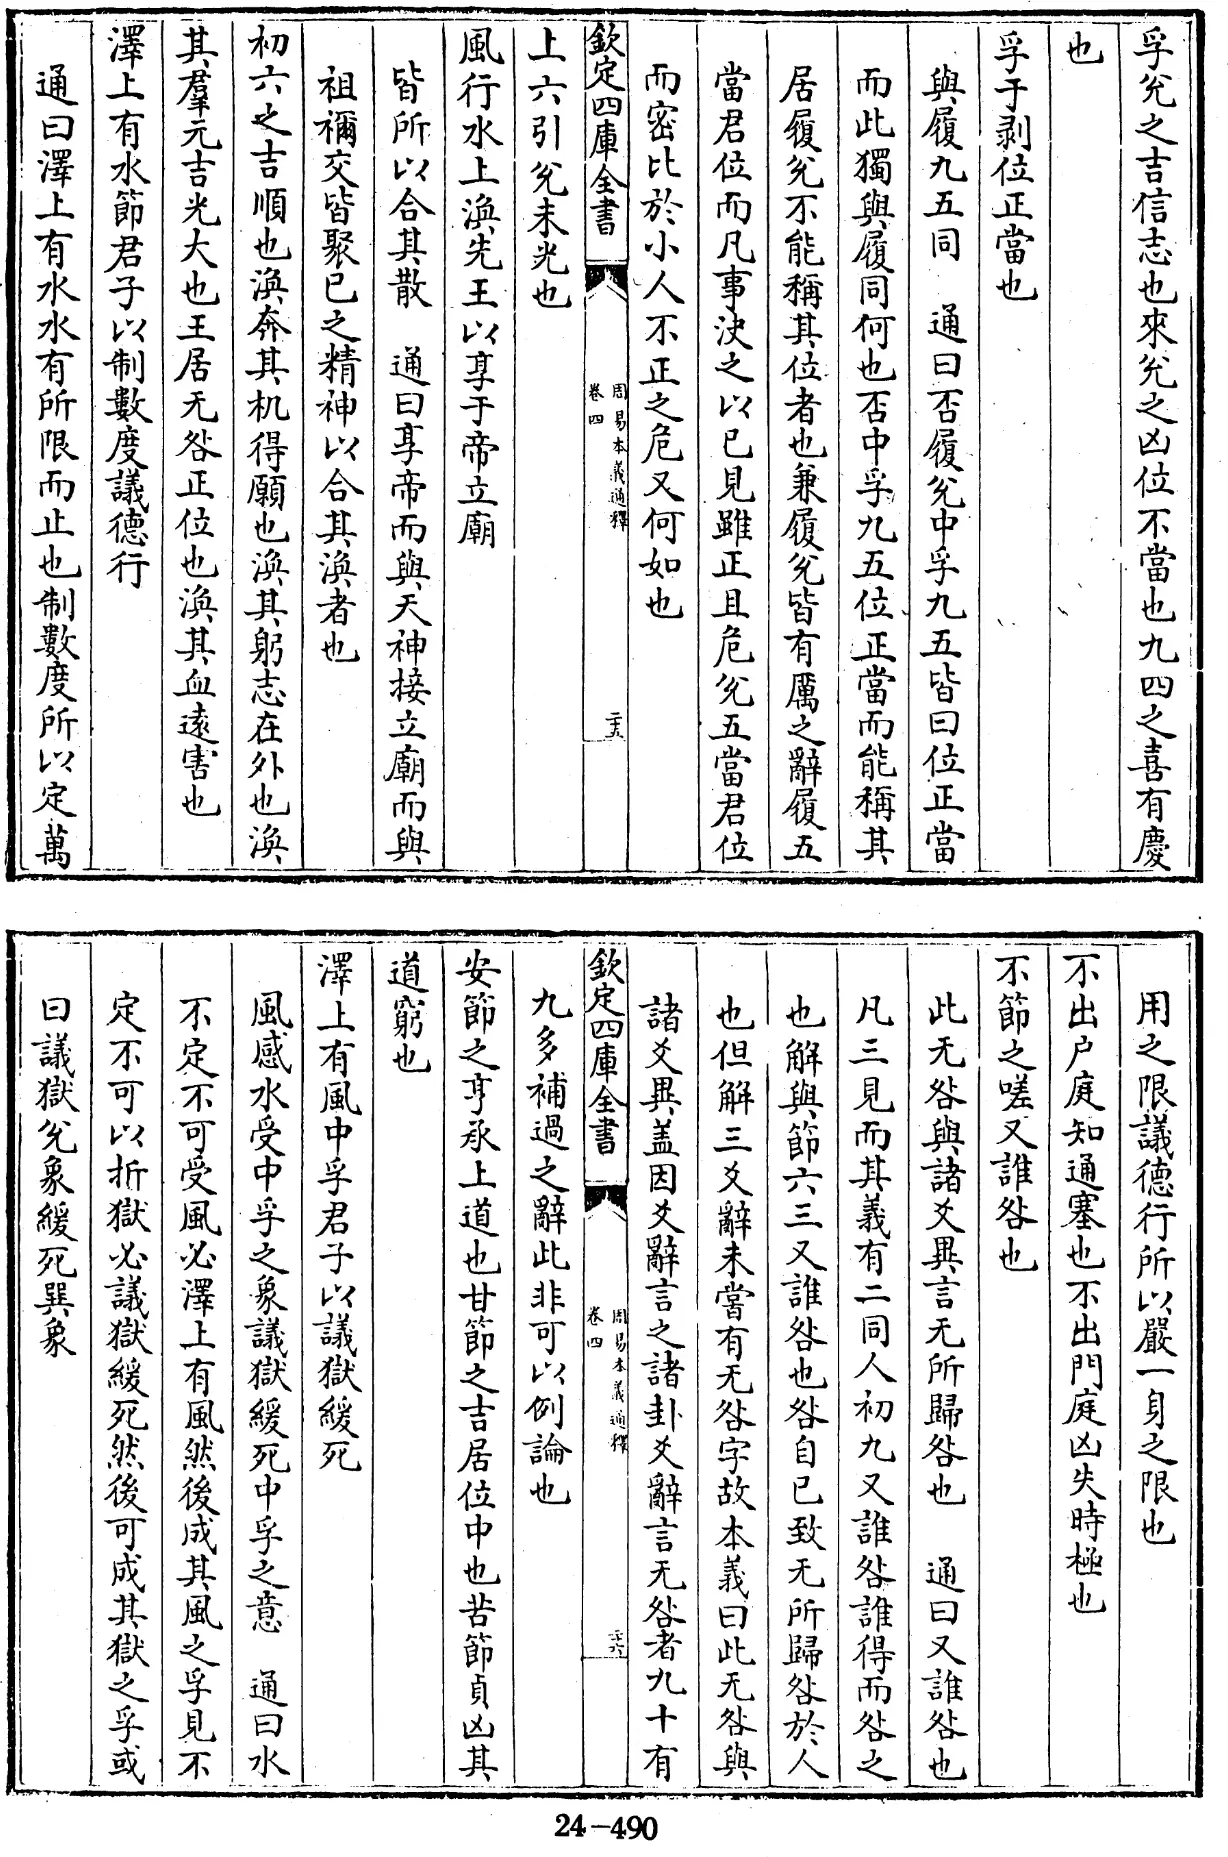 孚兊之吉信志也來兊之凶位不當也九四之喜有慶
也
孚于剥位正當也
與履九五同　通曰否履兊中孚九五皆曰位正當
而此獨與履同何也否中孚九五位正當而能稱其
居履兊不能稱其位者也兼履兊皆有厲之辭履五
當君位而凡事決之以已見雖正且危兊五當君位
而密比於小人不正之危又何如也
欽定四庫全書
周易本義通釋
卷四
二十五
上六引兊未光也
風行水上渙先王以享于帝立廟
皆所以合其散　通曰享帝而與天神接立廟而與
祖禰交皆聚已之精神以合其渙者也
初六之吉順也渙奔其机得願也渙其躬志在外也渙
其羣元吉光大也王居无咎正位也渙其血遠害也
澤上有水節君子以制數度議德行
通曰澤上有水水有所限而止也制數度所以定萬
用之限議德行所以嚴一身之限也
不出户庭知通塞也不出門庭凶失時極也
不節之嗟又誰咎也
此无咎與諸爻異言无所歸咎也　通曰又誰咎也
凡三見而其義有二同人初九又誰咎誰得而咎之
也解與節六三又誰咎也咎自已致无所歸咎於人
也但解三爻辭未嘗有无咎字故本義曰此无咎與
諸爻異盖因爻辭言之諸卦爻辭言无咎者九十有
欽定四庫全書
周易本義通釋
卷四
二十六
九多補過之辭此非可以例論也
安節之亨承上道也甘節之吉居位中也苦節貞凶其
道窮也
澤上有風中孚君子以議獄緩死
風感水受中孚之象議獄緩死中孚之意　通曰水
不定不可受風必澤上有風然後成其風之孚見不
定不可以折獄必議獄緩死然後可成其獄之孚或
曰議獄兊象緩死巽象
24-490